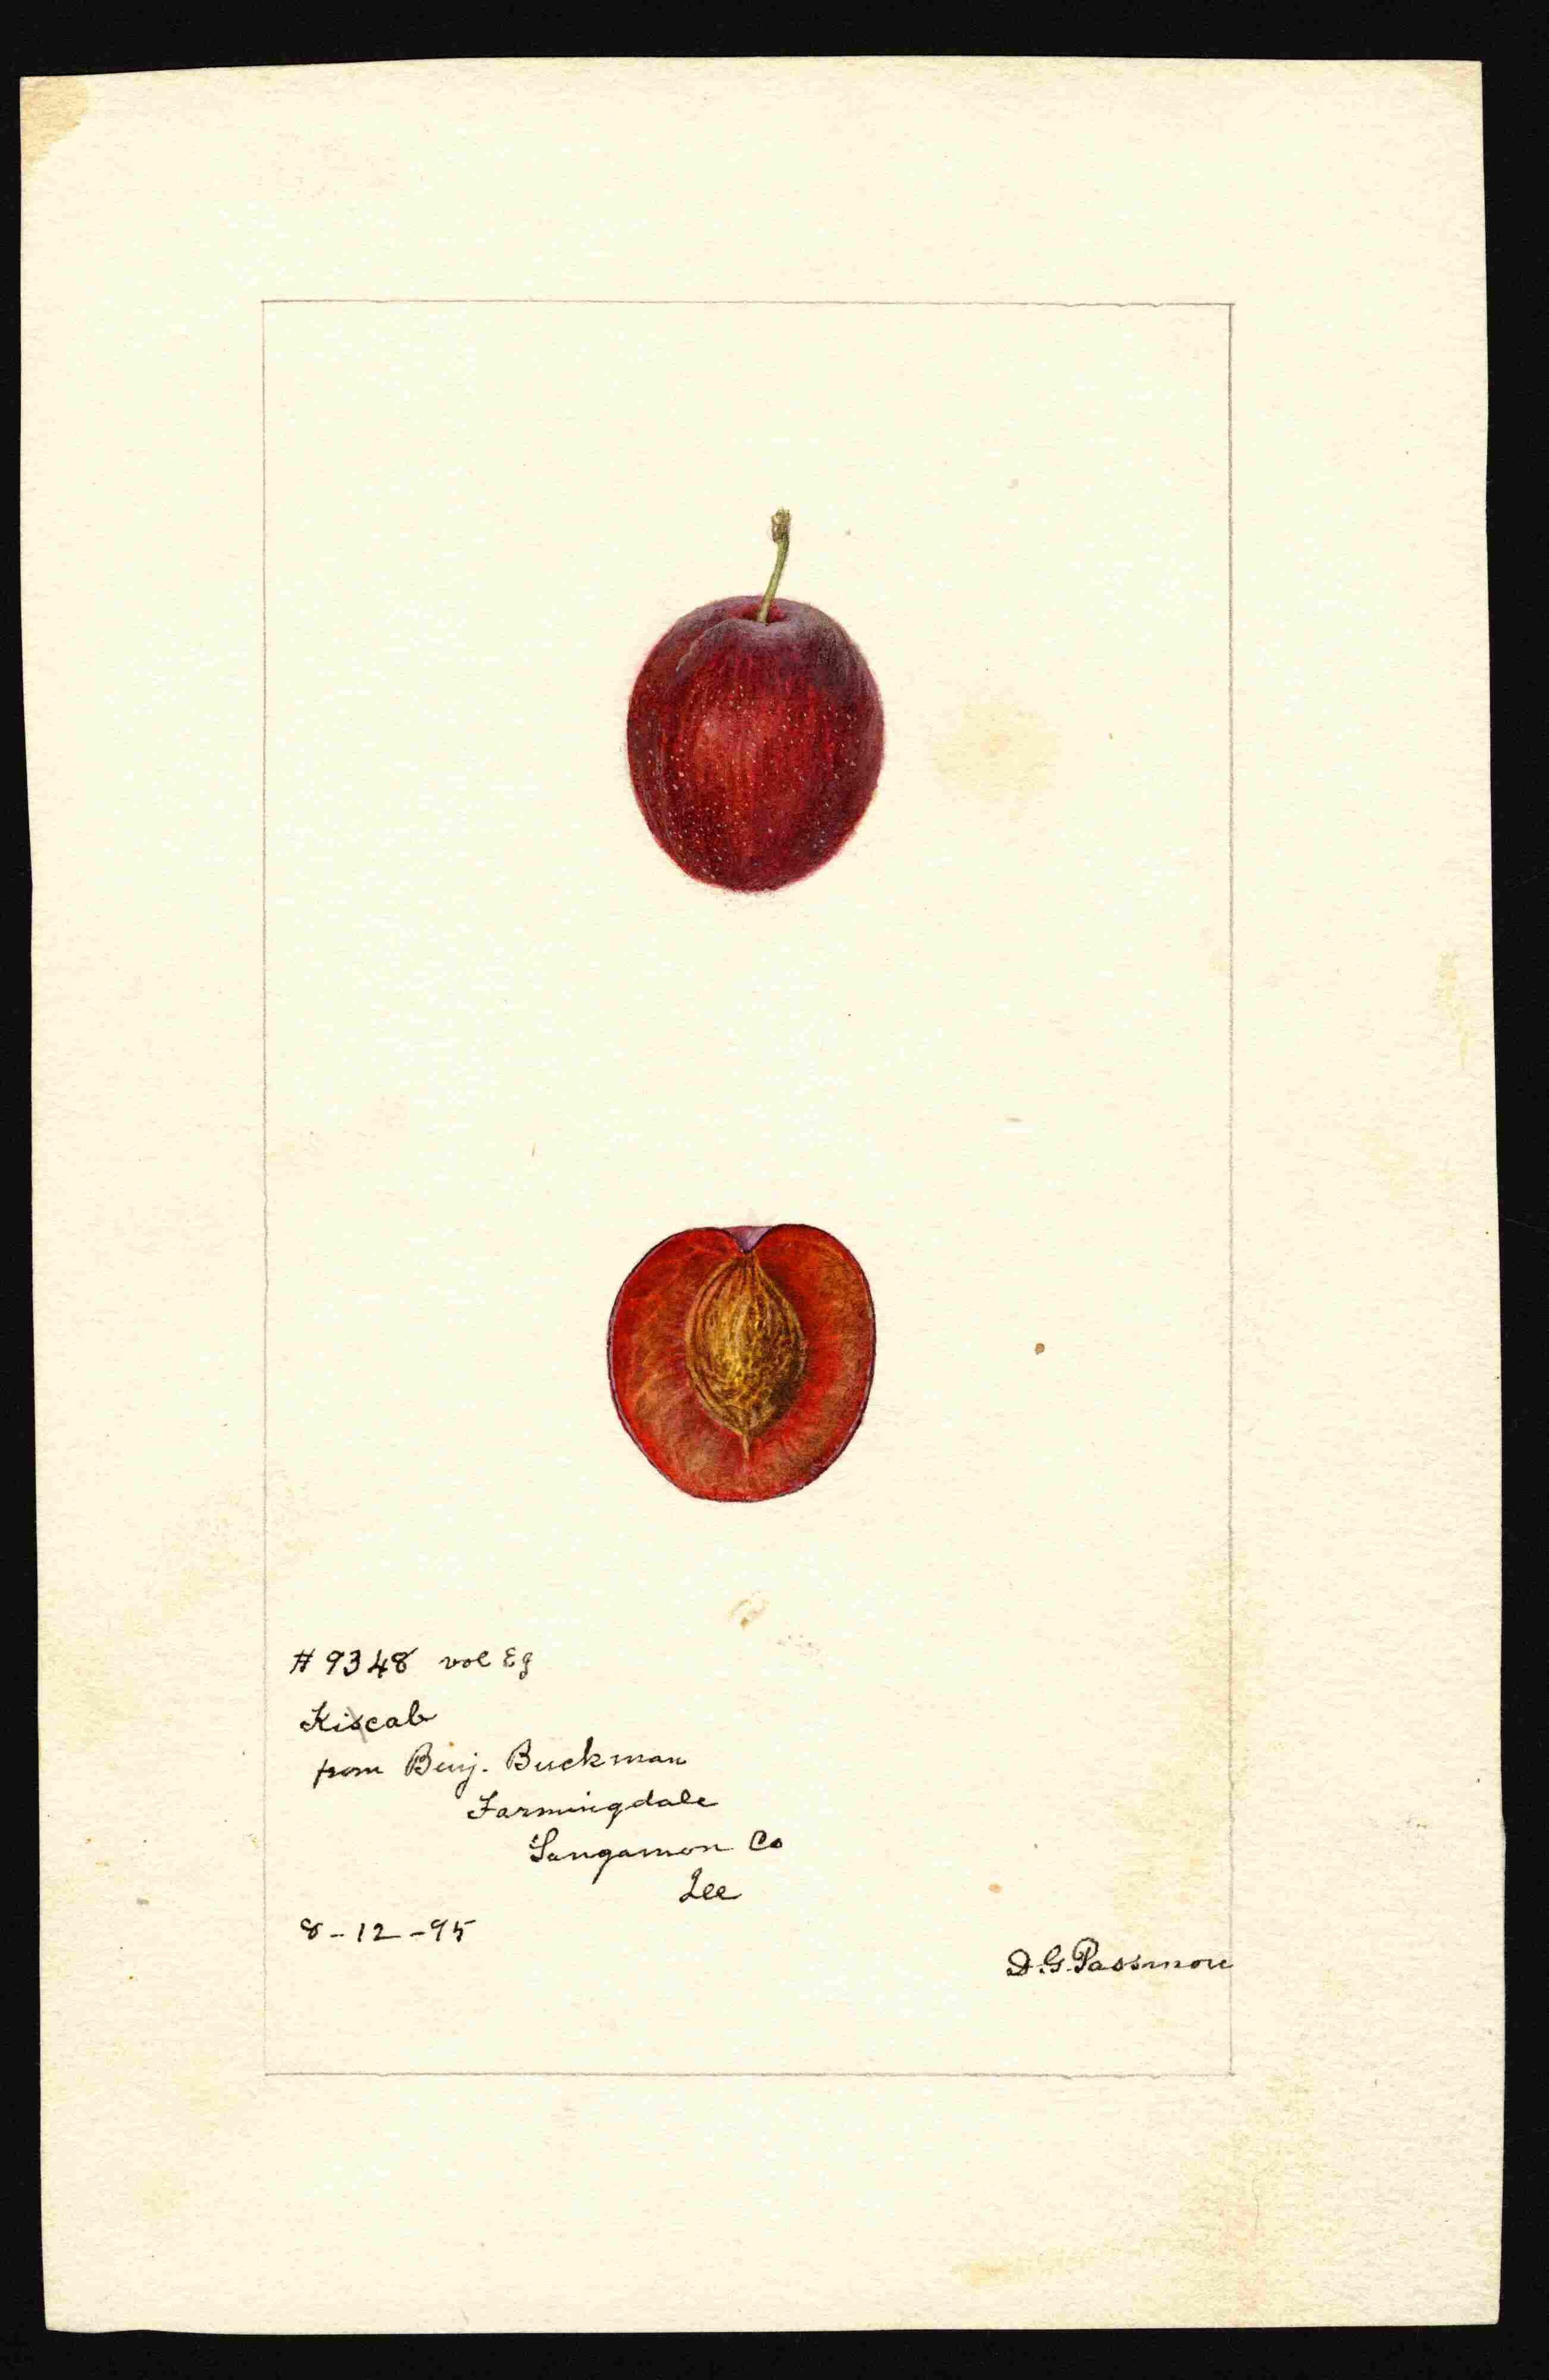 # 9348 vol Eg
Kiscab
from Benj. Buckman
Farmingdale
Sangamon Co
Ill
8-12-95
D.G. Passmore